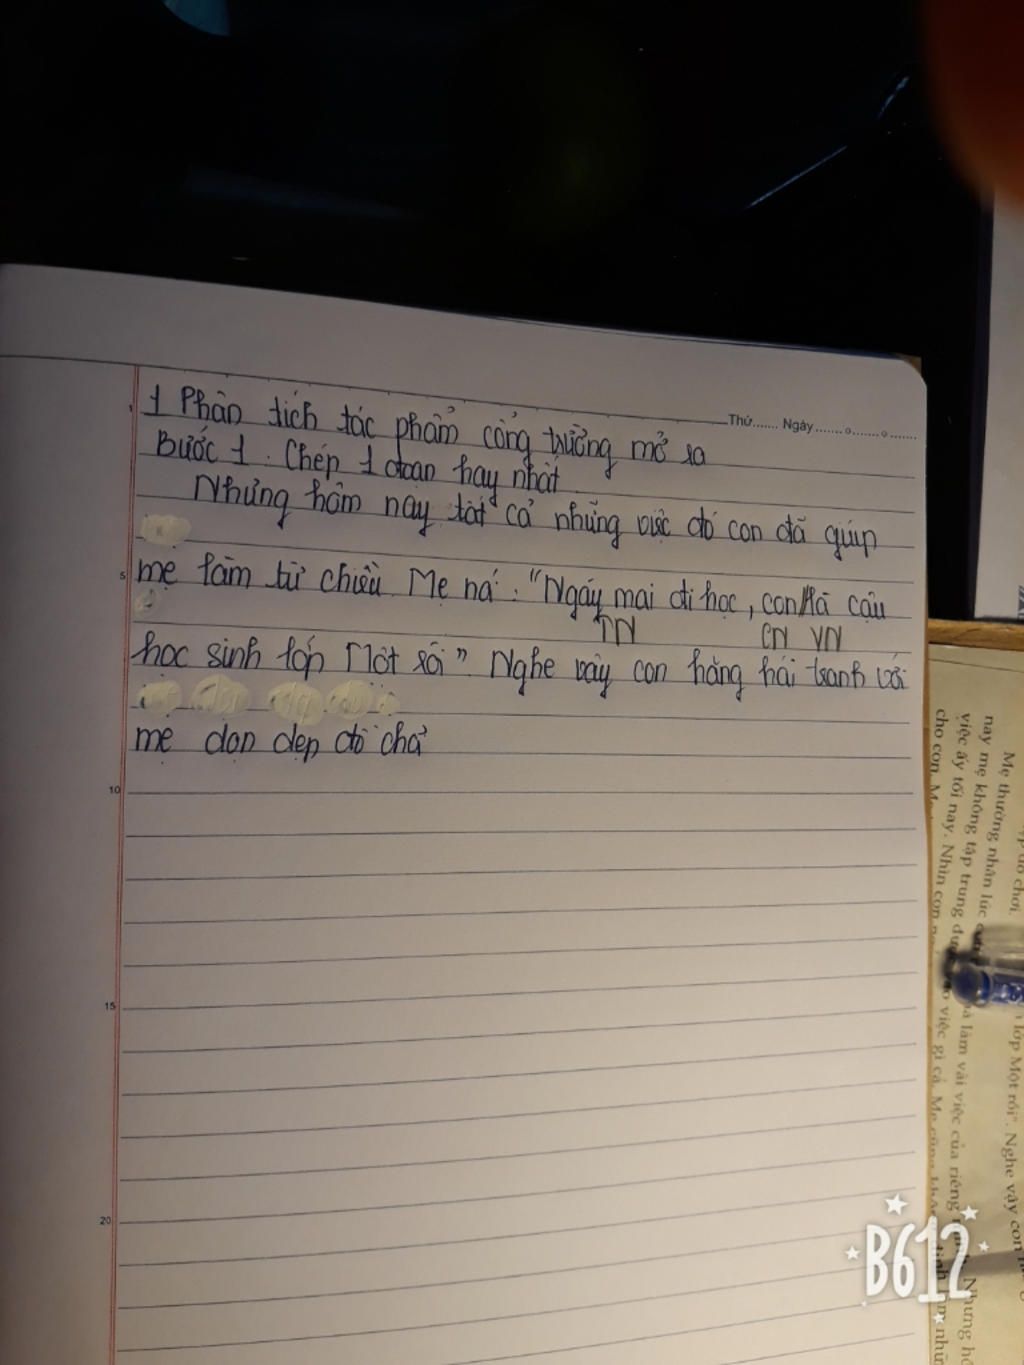 Thứ....... Ngày.......o.......o.......
1 Phân tích tác phẩm cổng trường mở ra
Bước 1. Chép 1 đoạn hay nhất
Nhưng hôm nay tất cả những việc đó con đã giúp
5
mẹ làm từ chiều. Mẹ nói: "Ngày mai đi học, con/là cậu
TN CN VN
học sinh lớp Một rồi" Nghe vậy con hăng hái tranh với
mẹ dọn dẹp đồ chơi
10
15
20
đồ chơi.
Mẹ thường nhân lúc
nay mẹ không tập trung được
việc ấy tối nay. Nhìn con
cho con.
lớp Một rồi". Nghe vậy con
là làm vài việc của riêng
Nhưng
việc gì cả. Mẹ cũng
B612